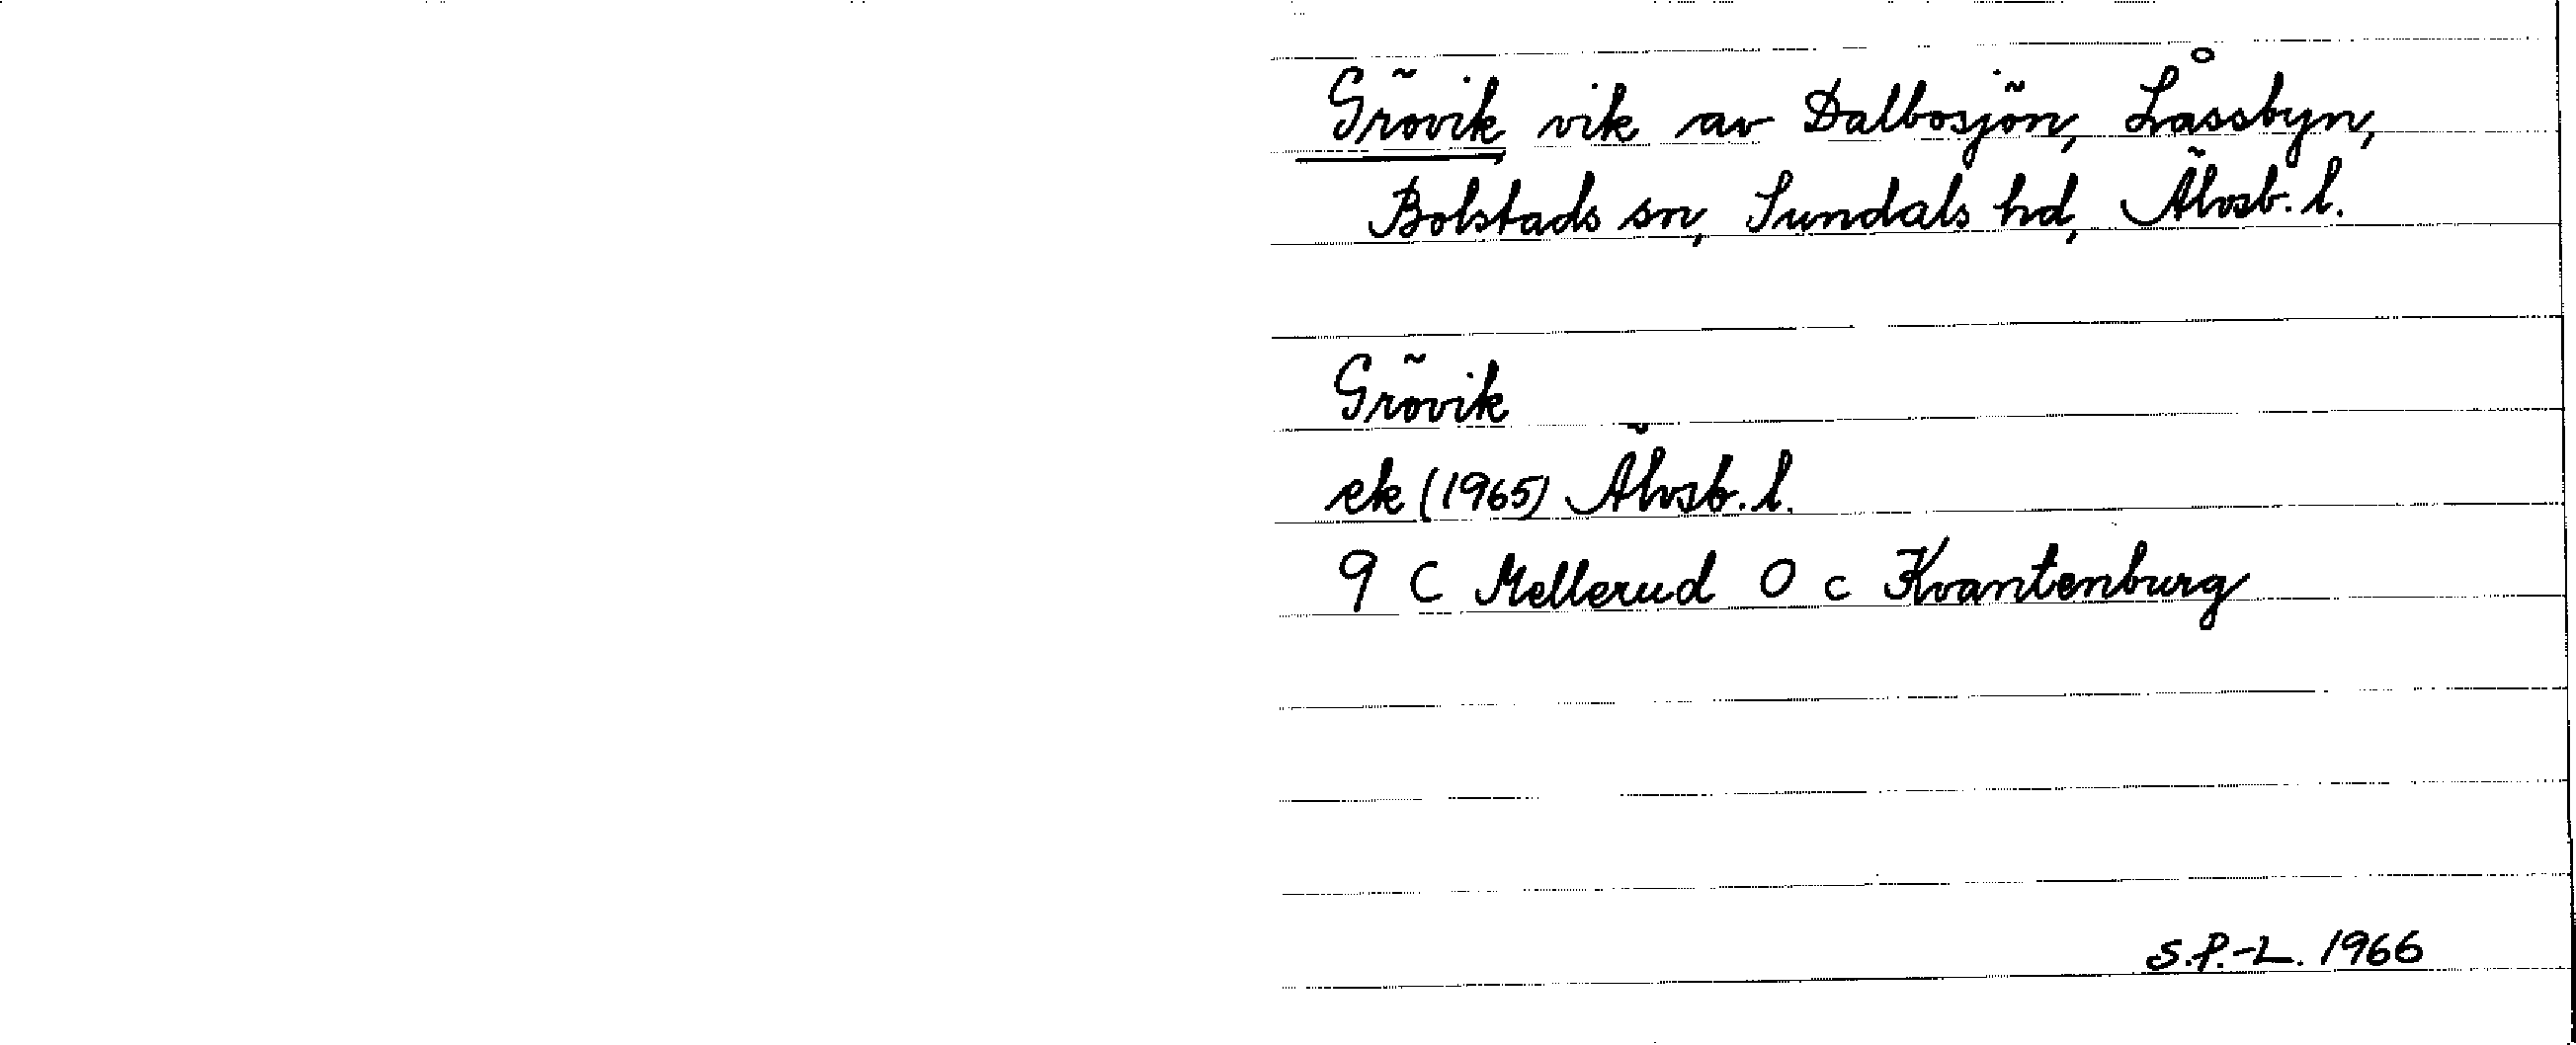 Grövik vik av Dalbosjön, Låssbyn,
Bolstads sn, Sundals hd, Älvsb. l.
Grövik
ek (1965) Älvsb. l.
9 C Mellerud 0 c Kvantenburg
S.P.-L. 1966